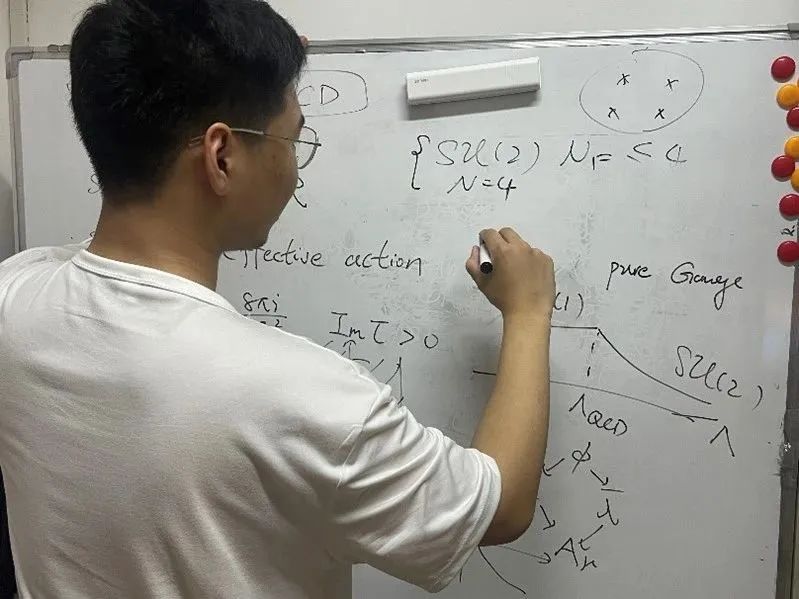 CD
SU(2) N_F = ≤ 4
N=4
effective action
pure Gauge
8πi
Im τ > 0
(1)
SU(2)
Λ_QCD
Λ
φ
λ
A_μ